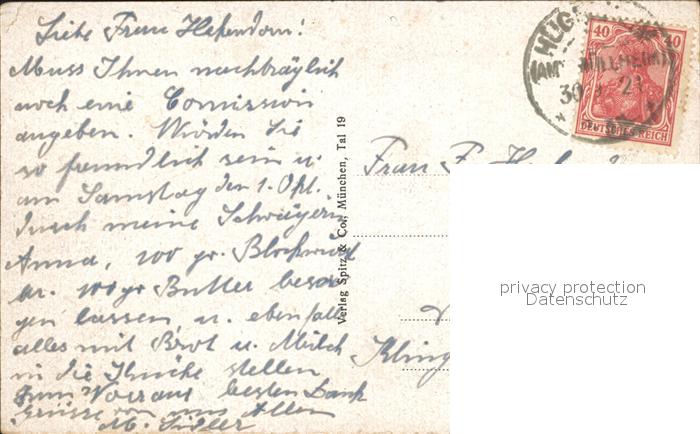 Liebe Frau Hefendorn!
Muss Ihnen nachträglich
noch eine Comission
angeben. Würden Sie
so freundlich sein u.
am Samstag den 1. Okt.
durch meine Schwägerin
Anna, 100 gr. Blockwurst
u. 100 gr Butter besor
gen lassen u. ebenfalls
alles mit Brot u. Milch
in die Küche stellen
Zum Voraus besten Dank
Grüsse von uns Allen
M. Sidler
Verlag Spitz & Co., München, Tal 19
Frau F.
Kling
HÜG
(AMT MÜLLHEIM)
30 21
40 40
DEUTSCHES REICH
privacy protection
Datenschutz